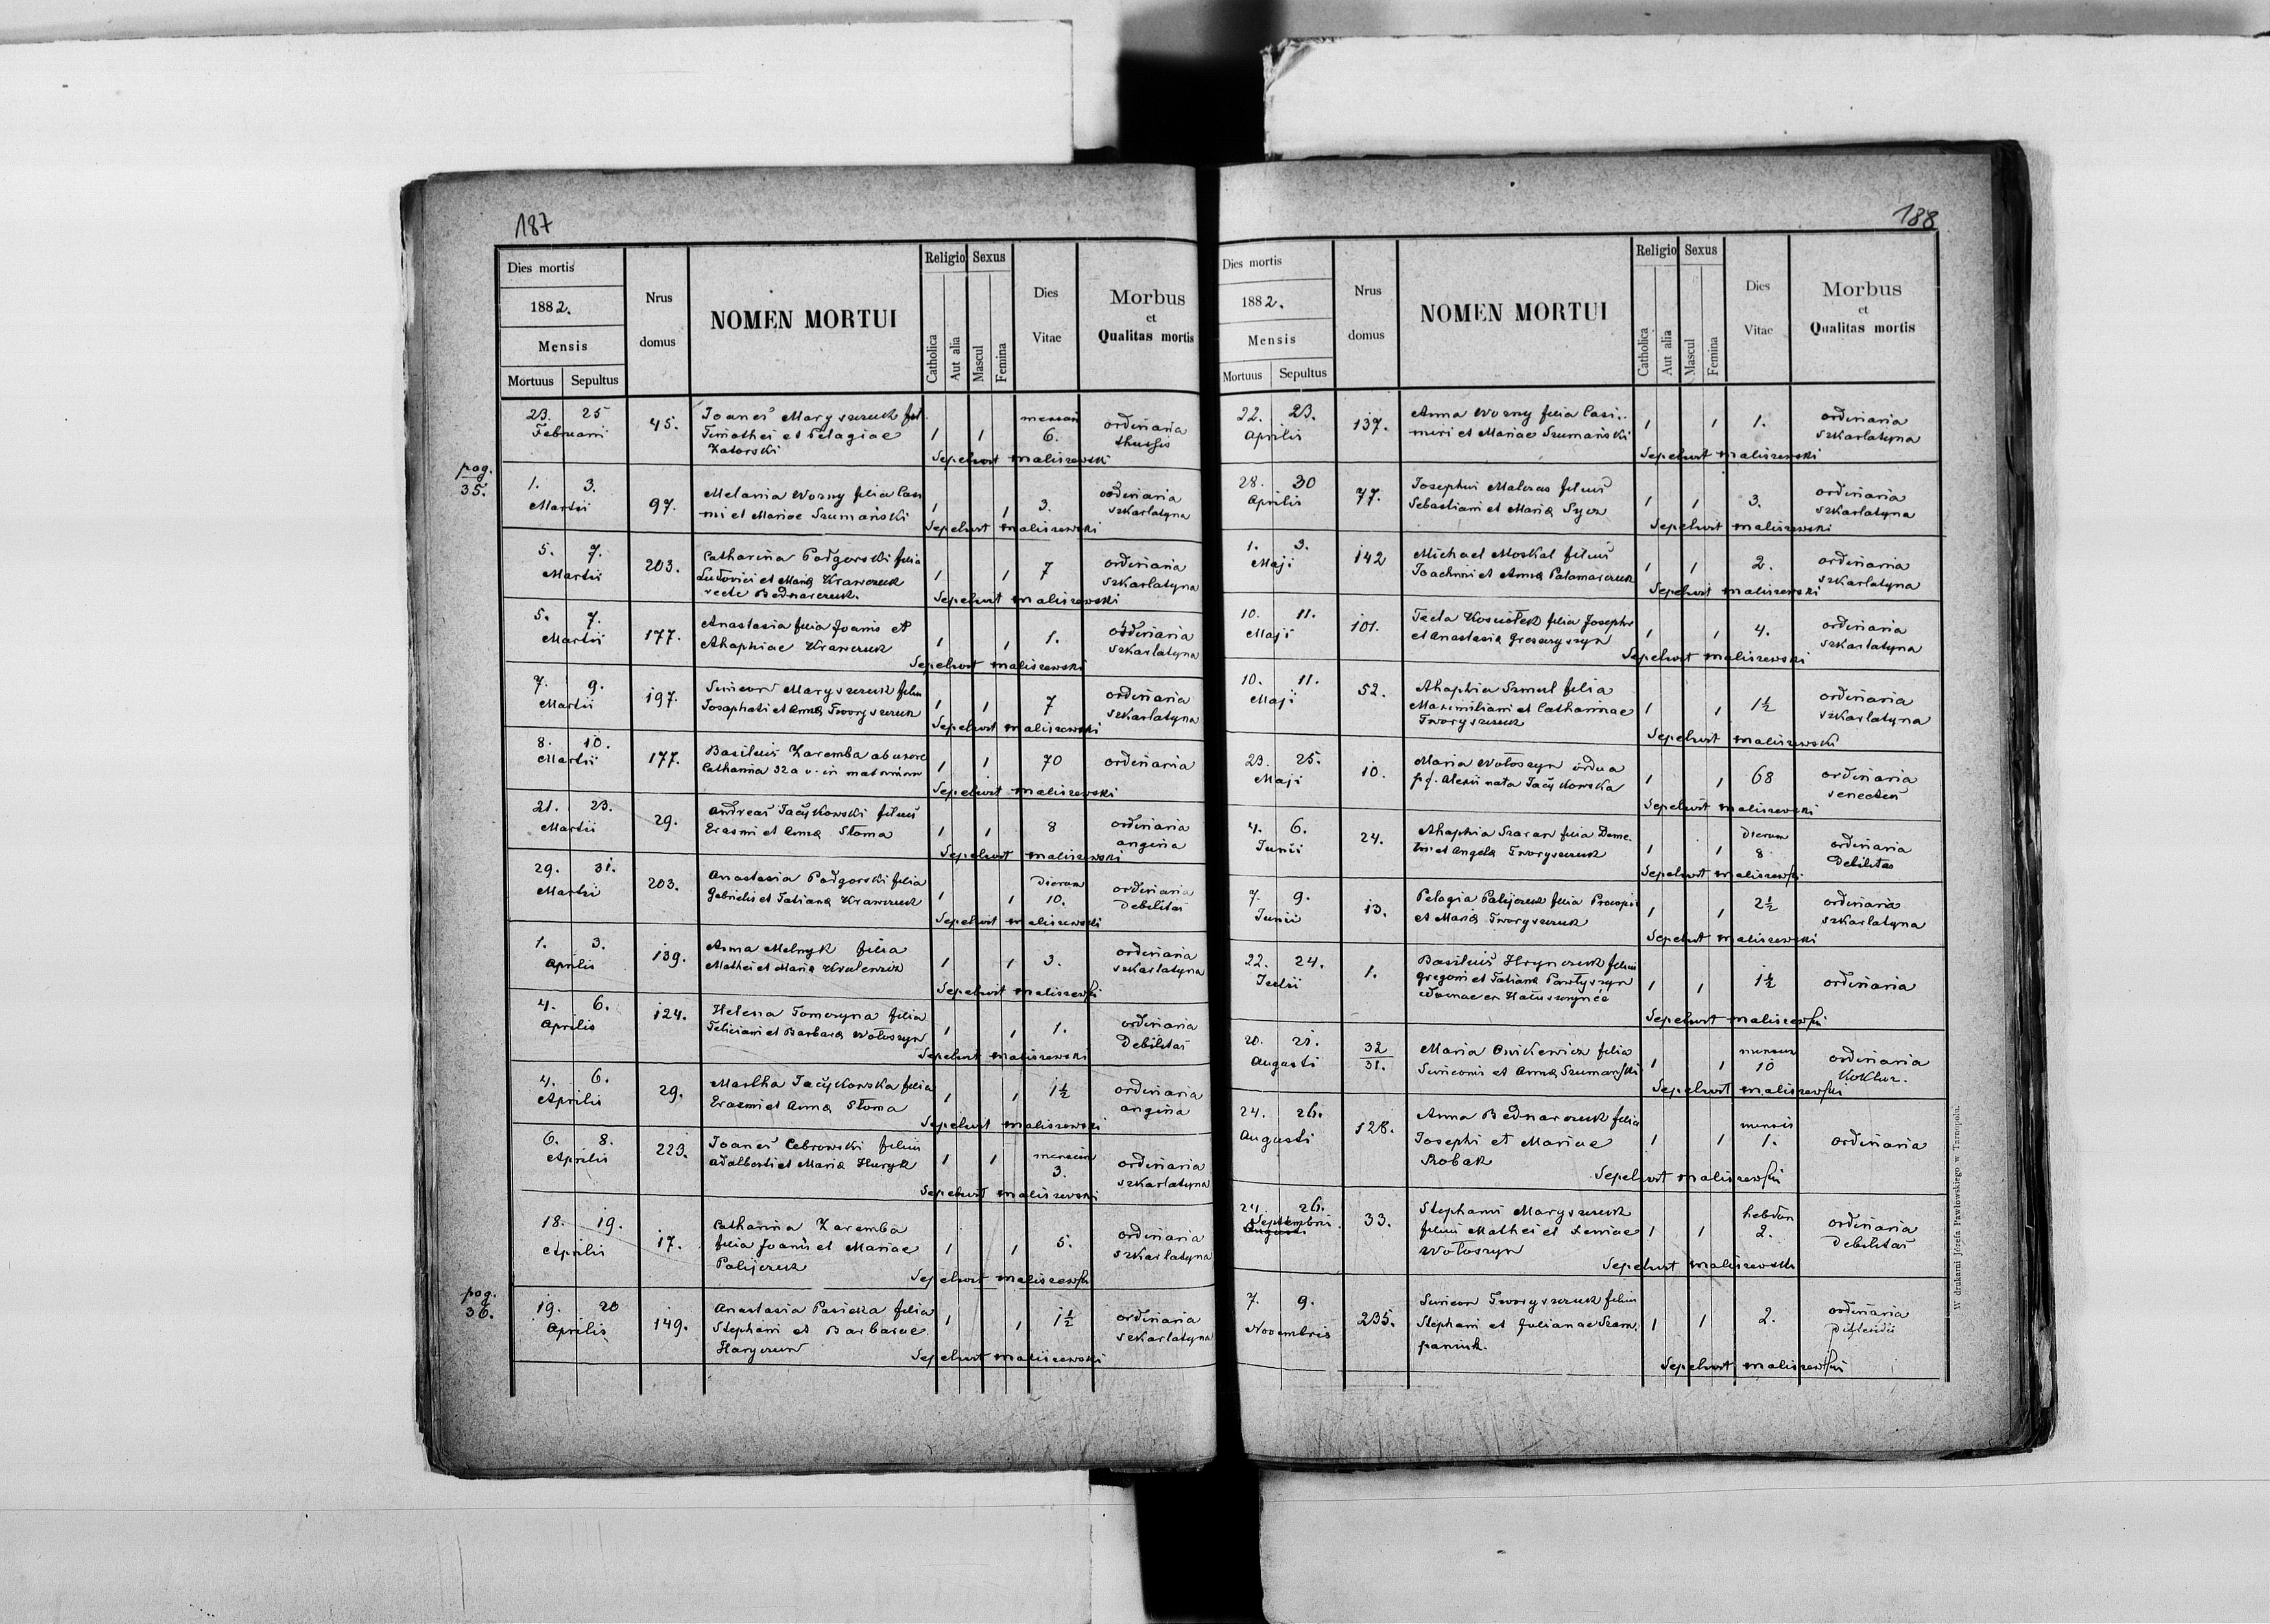 187
Dies mortis
1882.
Mensis
Mortuus Sepultus
Nrus domus
NOMEN MORTUI
Religio Sexus
Catholica Aut alia Mascul Femina
Dies Vitae
Morbus et Qualitas mortis
23. 25
Februarii
45.
Joanes Maryszczuk fil.
Timothei et Pelagiae
Zatorski
1 1
6.
ordinaria
Sepelivit Maliszewski
pag.
35.
1. 3.
Martii
97.
Melania Worny filia Casi
mi et Mariae Szumański
1 1 3.
ordinaria
szkarlatyna
Sepelivit Maliszewski
5. 7.
Martii
203.
Catharina Podgorski filia
Ludovici et Maria Krawczuk
recte Bednarczuk.
1 1 7
ordinaria
szkarlatyna
Sepelivit Maliszewski
5. 7.
Martii
177.
Anastasia filia Joanis et
Ahaphiae Krawczuk
1 1 1.
ordinaria
szkarlatyna
Sepelivit Maliszewski
7. 9.
Martii
197.
Simeon Maryszczuk filius
Josaphati et Anna Tworyszczuk
1 1 7
ordinaria
szkarlatyna
Sepelivit Maliszewski
8. 10.
Martii
177.
Basilius Zaremba ab uxore
Catharina 32 a v. in matrimon
1 1 70
ordinaria
Sepelivit Maliszewski
21. 23.
Martii
29.
Andreas Jacykowski filius
Erasmi et Anna Słoma
1 1 8
ordinaria
angina
Sepelivit Maliszewski
29. 31.
Martii
203.
Anastasia Podgorski filia
Gabrielis et Tatiana Krawczuk
1 1
Dierum
10.
ordinaria
Debilitas
Sepelivit Maliszewski
1. 3.
Aprilis
139.
Anna Melnyk filia
Mathei et Maria
1 1 3.
ordinaria
szkarlatyna
Sepelivit Maliszewski
4. 6.
Aprilis
124.
Helena Tomczyna filia
Feliciani et Barbara Wołoszyn
1 1 1.
ordinaria
Debilitas
Sepelivit Maliszewski
4. 6.
Aprilis
29.
Martha Jacykowska filia
Erasmi et Anna Słoma
1 1 1½
ordinaria
angina
Sepelivit Maliszewski
6. 8.
Aprilis
223.
Joanes Cebrowski filius
Adalberti et Maria Huryk
1 1
mensium
3.
ordinaria
szkarlatyna
Sepelivit Maliszewski
18. 19.
Aprilis
17.
Catharina Zaremba
filia Joanis et Mariae
Palijczuk
1 1 5.
ordinaria
szkarlatyna
Sepelivit Maliszewski
pag.
36.
19. 20
Aprilis
149.
Anastasia Pasieka filia
Stephani et Barbarae
1 1 1½
ordinaria
szkarlatyna
Sepelivit Maliszewski
188
Dies mortis
1882.
Mensis
Mortuus Sepultus
Nrus domus
NOMEN MORTUI
Religio Sexus
Catholica Aut alia Mascul Femina
Dies Vitae
Morbus et Qualitas mortis
22. 23.
Aprilis
137.
Anna Worny filia Casi-
miri et Mariae Szumański
1 1 1.
ordinaria
szkarlatyna
Sepelivit Maliszewski
28. 30
Aprilis
77.
Josephus filius
Sebastiani et Maria Sycz
1 1 3.
ordinaria
szkarlatyna
Sepelivit Maliszewski
1. 3.
Maji
142
Michael Moskal filius
Joachimi et Anna Palamarczuk
1 1 2.
ordinaria
szkarlatyna
Sepelivit Maliszewski
10. 11.
Maji
101.
Tecla Kosciołek filia Josephi
et Anastasia
1 1 4.
ordinaria
szkarlatyna
Sepelivit Maliszewski
10. 11.
Maji
52.
Ahaphia Szmul filia
Maximiliani et Catharinae
Tworyszczuk
1 1 1½
ordinaria
szkarlatyna
Sepelivit Maliszewski
23. 25.
Maji
10.
Maria Wołoszyn vidua
p.d. Alexii nata Jacykowska
1 1 68
ordinaria
Sepelivit Maliszewski
4. 6.
Junii
24.
Ahaphia Szaran filia Deme-
trii et Angela Tworyszczuk
1 1
Dierum
8
ordinaria
Debilitas
Sepelivit Maliszewski
7. 9.
Junii
13.
Pelagia Palijczuk filia Procopii
et Maria Tworyszczuk
1 1 2½
ordinaria
szkarlatyna
Sepelivit Maliszewski
22. 24.
Julii
1.
Basilius Hrynczuk filius
Gregorii et Tatiana Pawłyszyn
1 1 1½
ordinaria
Sepelivit Maliszewski
20. 21.
Augusti
32
31.
Maria Cwikewicz filia
Simeonis et Anna Szumański
1 1
10
ordinaria
Koklusz.
Sepelivit Maliszewski
24. 26.
Augusti
128.
Anna Bednarczuk filia
Josephi et Mariae
Robak
1 1
mensis
1.
ordinaria
Sepelivit Maliszewski
24. 26.
Septembris
Augusti
33.
Stephanus Maryszczuk
filius Mathei et Xeniae
Wołoszyn
1 1
hebdom
2.
ordinaria
debilitas
Sepelivit Maliszewski
7. 9.
Novembris
235.
Simeon Tworyszczuk filius
Stephani et Julianae Szcze-
paniuk.
1 1 2.
ordinaria
Sepelivit Maliszewski
W drukarni Józefa Pawłowskiego w Tarnopolu.